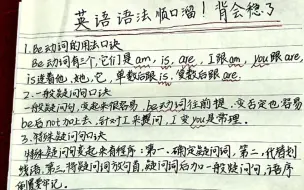 英语语法顺口溜!背会稳了
1.Be动词的用法口诀
Be动词有三个,它们是am,is,are,I跟am,you跟are,
is连着他,她,它,单数后跟is,复数后跟are.
2.一般疑问句口诀
一般疑问句,变起来很容易,be动词往前提,变否定也容易
be后not加上去,针对I来提问,I变you是常理.
3.特殊疑问句口诀
特殊疑问句变起来有程序:第一,确定疑问词,第二,代替划
线语,第三,将疑问词放句首,疑问词后加一般疑问句,语序
倒置要牢记.